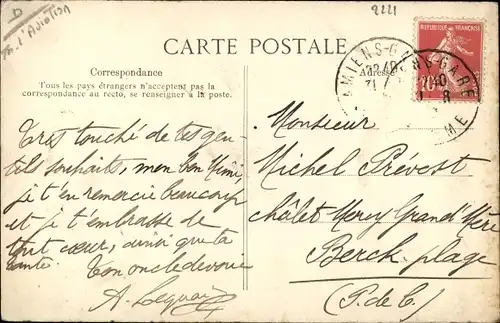 D
Th. l'Aviation
9221
CARTE POSTALE
Correspondance
Tous les pays étrangers n'acceptent pas la
correspondance au recto, se renseigner à la poste.
Adresse
AMIENS-GARE
10
Très touché de tes gen-
tils souhaits, mon bon Mimi,
je t'en remercie beaucoup
et je t'embrasse de
tout cœur, ainsi que ta
tante.
Ton oncle
A.
Monsieur
Michel Prévost
châlet Mercy Grand'Mère
Berck-plage
(P. de C.)